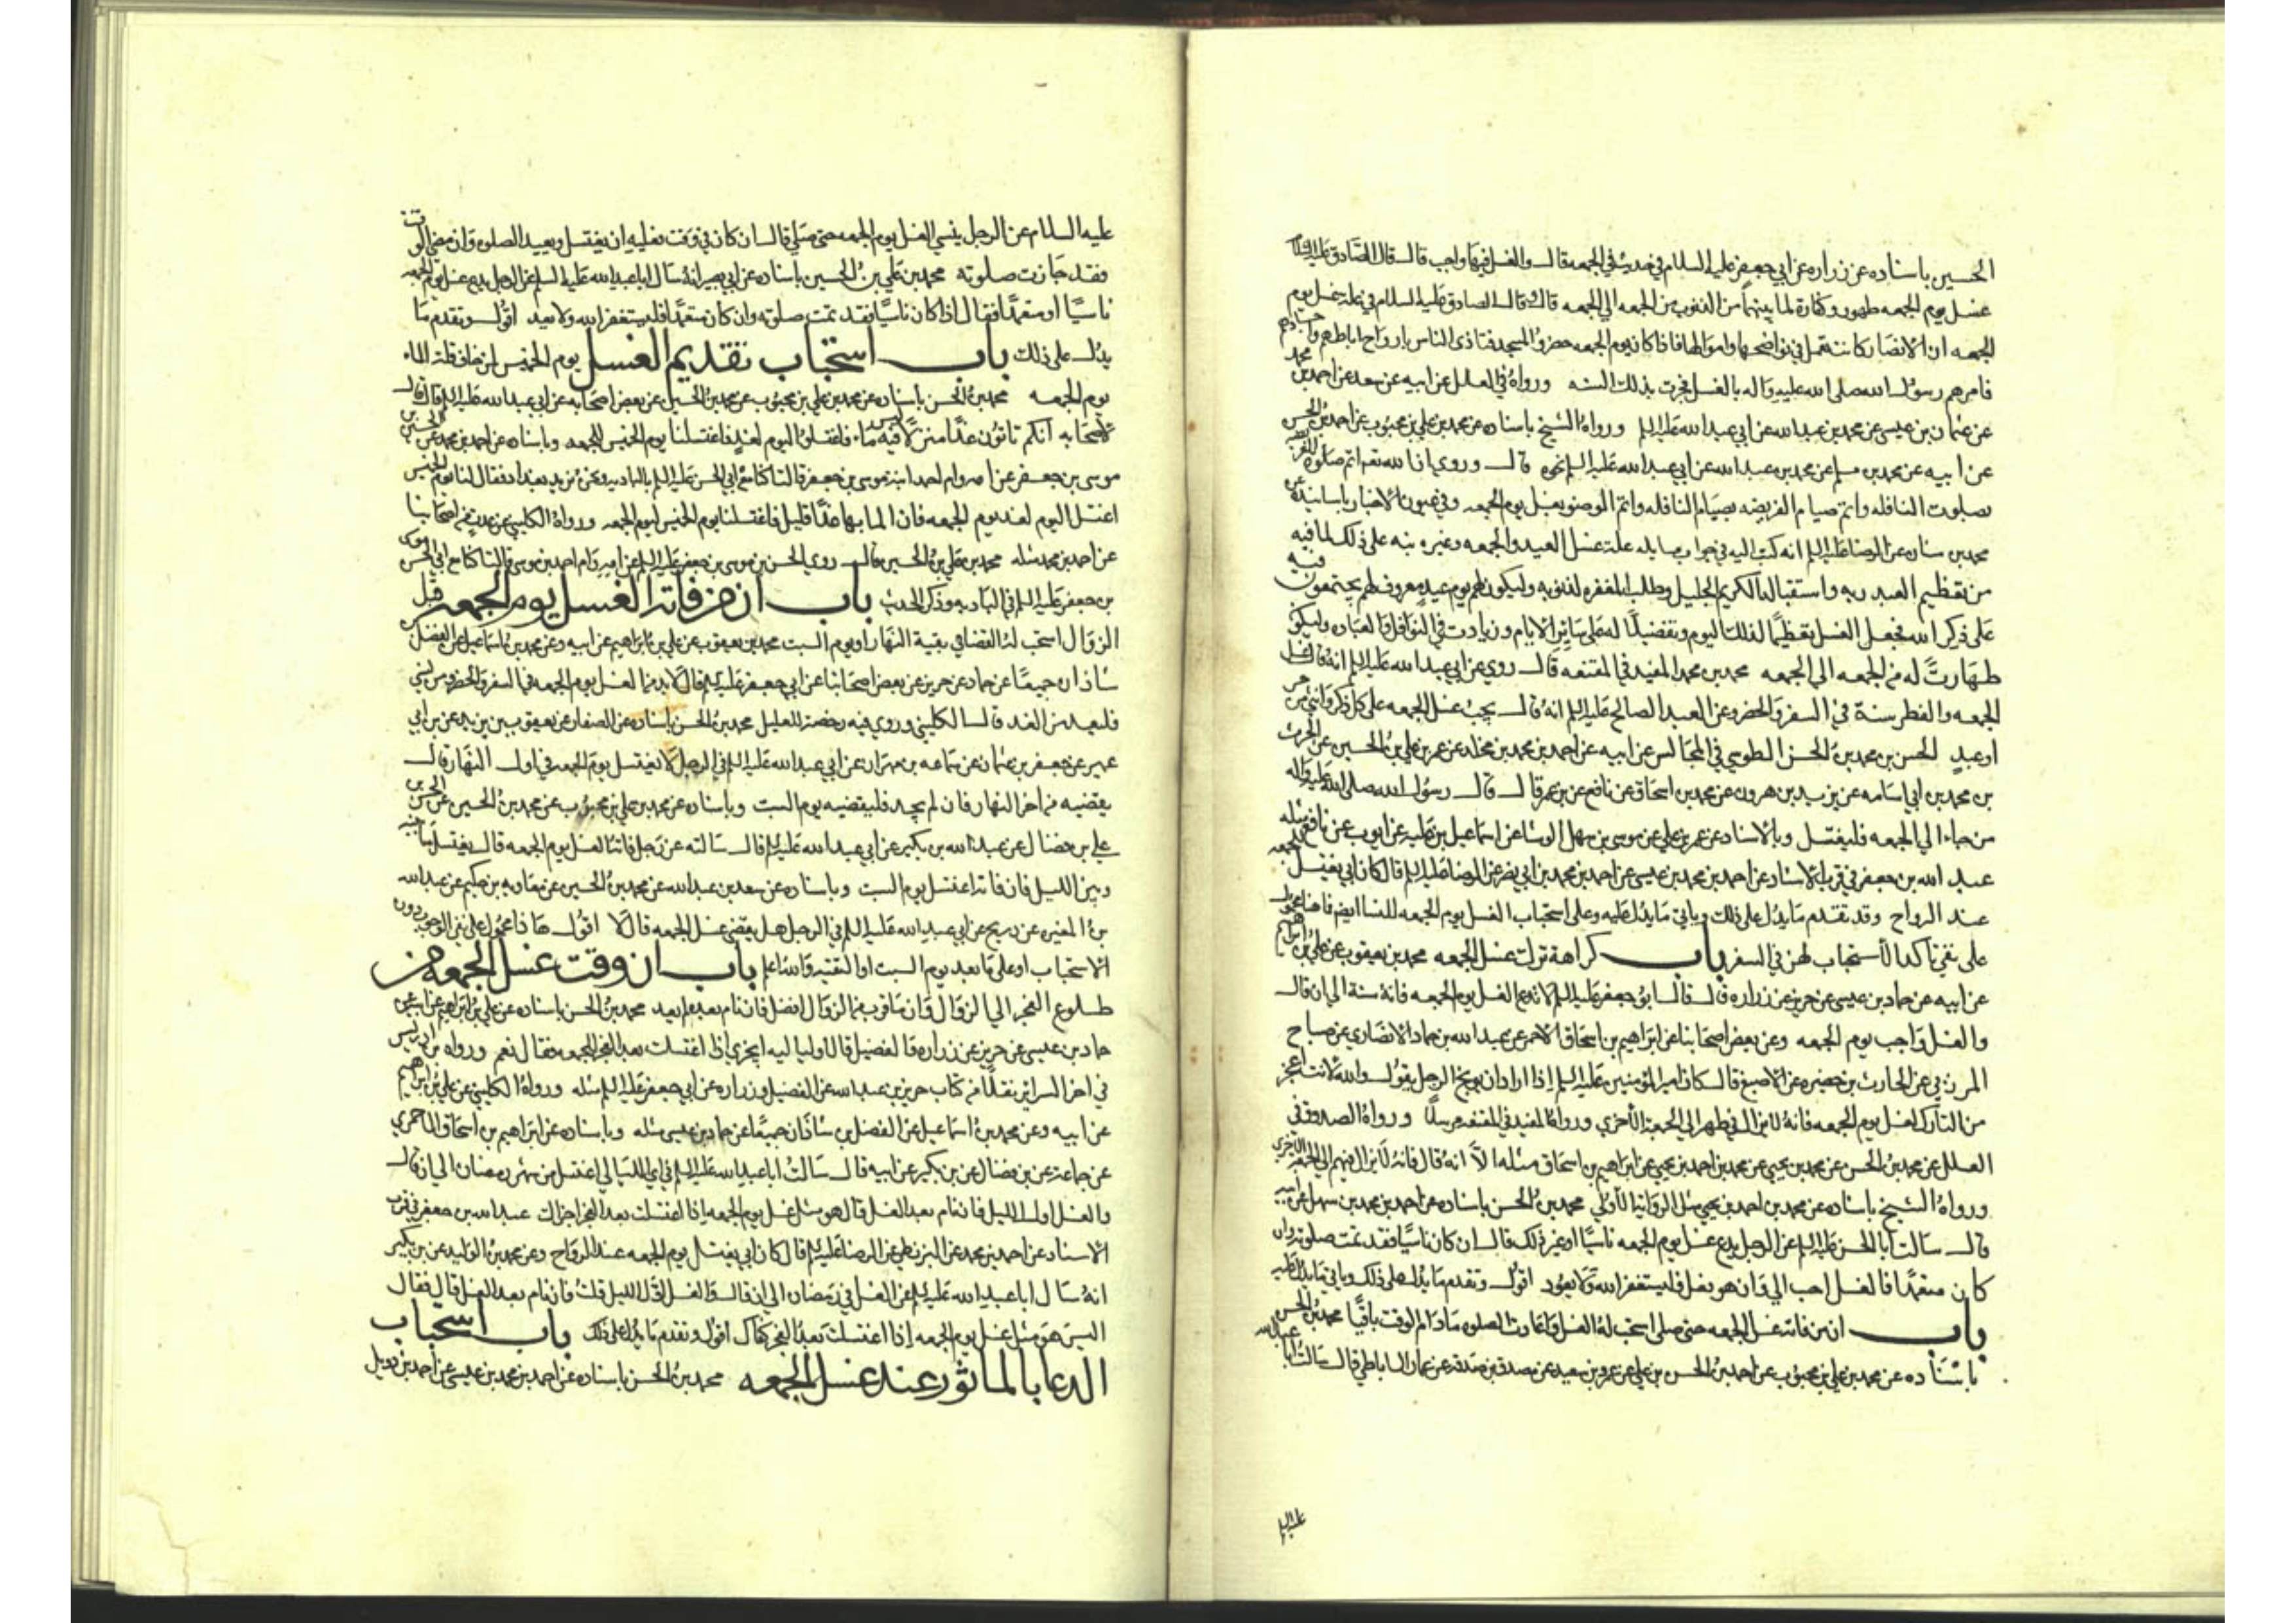 الحسين باسناده عن زراره عن ابي جعفر عليه السلام في حديث في الجمعه قال والغسل فيها واجب قال قال الصادق عليه السلام
غسل يوم الجمعه طهور وكفارة لما بينهما من الذنوب من الجمعه الي الجمعه قال وقال الصادق عليه السلام في علة غسل يوم
الجمعه ان الانصار كانت تعمل في نواضحها واموالها فاذا كان يوم الجمعه حضروا المسجد فتاذى الناس بارواح اباطهم واجسادهم
فامرهم رسول الله صلى الله عليه واله بالغسل فجرت بذلك السنه ورواه في العلل عن ابيه عن سعد عن احمد بن محمد
عن عثمان بن عيسى عن محمد بن عبدالله عن ابي عبدالله عليه السلام ورواه الشيخ باسناده عن محمد بن علي بن محبوب عن احمد بن الحسن
عن ابيه عن محمد بن مسلم عن محمد بن عبدالله عن ابي عبدالله عليه السلام نحوه قال وروي ان الله تعم اتم صلوة الفريضه
بصلوة النافله واتم صيام الفريضه بصيام النافله واتم الوضو بغسل يوم الجمعه وفي عيون الاخبار باسانيده عن
محمد بن سنان عن الرضا عليه السلام انه كتب اليه في جواب مسايله علة غسل العيد والجمعه وغيره بنه على ذلك لما فيه
من تعظيم العبد ربه واستقباله الكريم الجليل وطلب المغفره لذنوبه وليكون لهم يوم عيد معروف لهم يجتمعون فيه
على ذكر الله فجعل الغسل تعظيمًا لذلك اليوم وتفضيلًا له على سائر الايام وزيادت في النوافل والعباده وليكون
طهارتً له من الجمعه الى الجمعه محمد بن محمد المفيد في المقنعه قال روي عن ابي عبدالله عليه السلام انه قال غسل
الجمعه والفطر سنة في السفر والحضر وعن العبد الصالح عليه السلام انه قال يجب غسل الجمعه على كل ذكر وانثى من حر
او عبدٍ الحسن بن محمد بن الحسن الطوسي في المجالس عن ابيه عن احمد بن محمد بن مخلد عن عمر بن علي بن الحسين عن الحرث
بن محمد بن ابي اسامه عن يزيد بن هرون عن محمد بن اسحاق عن نافع عن بن عمر قال قال رسول الله صلى الله عليه واله
من جاء الي الجمعه فليغتسل وبالاسناد عن عمر بن علي عن موسى بن سهل الوشا عن اسماعيل بن عليه عن ايوب عن نافع مثله
عبد الله بن جعفر في قرب الاسناد عن احمد بن محمد بن عيسى عن احمد بن محمد بن ابي نصر عن الرضا عليه السلام قال كان ابي يغتسل للجمعه
عند الرواح وقد تقدم ما يدل على ذلك وياتي ما يدل عليه وعلى استحباب الغسل يوم الجمعه للنسا ايضا
على نفي تاكد الاستحباب لهن في السفر باب كراهة ترك غسل الجمعه محمد بن يعقوب عن علي بن ابراهيم
عن ابيه عن حماد بن عيسى عن حريز عن زراره قال قال ابو جعفر عليه السلام لا تدع الغسل يوم الجمعه فانه سنة الى ان قال
والغسل واجب يوم الجمعه وعن بعض اصحابنا عن ابراهيم بن اسحاق الاحمر عن عبد الله بن حماد الانصاري عن صباح
المزني عن الحارث بن حضيره عن الاصبغ قال كان امير المؤمنين عليه السلام اذا اراد ان يوبخ الرجل يقول والله لانت اعجز
من التارك لغسل يوم الجمعه فانه لا يزال في طهر الى الجمعة الأخري ورواه المفيد في المقنعه مرسلًا ورواه الصدوق في
العلل عن محمد بن الحسن عن محمد بن يحيي عن محمد بن احمد بن يحيي عن ابراهيم بن اسحاق مثله الا انه قال فانه لا يزال في هم الى الجمعه الاخرى
ورواه الشيخ باسناده عن محمد بن احمد بن يحيي مثل الروايه الاولي محمد بن الحسن باسناده عن احمد بن محمد بن سهل عن ابيه
قال سالت ابا الحسن عليه السلام عن الرجل يدع غسل يوم الجمعه ناسيًا او غير ذلك قال ان كان ناسيًا فقد تمت صلوته وان
كان متعمدًا فالغسل احب الي وان هو فعل فليستغفر الله ولا يعود اقول وتقدم ما يدل على ذلك وياتي ما يدل عليه
باب ان من فاته غسل الجمعه حتى صلى استحب له الغسل واعادت الصلوه ما دام الوقت باقيًا محمد بن الحسن
باسناده عن محمد بن علي بن محبوب عن احمد بن الحسن بن علي عن عمرو بن سعيد عن مصدق بن صدقه عن عمار الساباطي قال سالت ابا عبدالله
عليه السلام
عليه السلام عن الرجل ينسي الغسل يوم الجمعه حتى صلي قال ان كان في وقت فعليه ان يغتسل ويعيد الصلوه وان مضى الوقت
فقد جازت صلوته محمد بن علي بن الحسين باسناده عن ابي بصير انه سال ابا عبدالله عليه السلم عن الرجل يدع غسل يوم الجمعه
ناسيًا او متعمدًا فقال اذا كان ناسيًا فقد تمت صلوته وان كان متعمدًا فليستغفر الله ولا يعد اقول وتقدم ما
يدل على ذلك باب استحباب تقديم الغسل يوم الخميس لمن خاف قلة الماء
يوم الجمعه محمد بن الحسن باسناده عن محمد بن علي بن محبوب عن محمد بن الحسين عن بعض اصحابه عن ابي عبد الله عليه السلام قال قال
لاصحابه انكم تاتون غدًا منزلًا ليس فيه ماء فاغتسلوا اليوم لغدٍ فاغتسلنا يوم الخميس للجمعه وباسناده عن احمد بن محمد عن الحسين بن
موسى بن جعفر عن امه وام احمد ابنة موسى بن جعفر قالتا كنا مع ابي الحسن عليه السلام بالباديه ونحن نريد بغداد فقال لنا يوم الخميس
اغتسلا اليوم لغد يوم الجمعه فان الما بها غدًا قليل فاغتسلنا يوم الخميس ليوم الجمعه ورواه الكليني عن عدة من اصحابنا
عن احمد بن محمد مثله محمد بن علي بن الحسين قال روي الحسن بن موسى بن جعفر عليه السلام عن امه وام احمد بن موسى قالتا كنا مع ابي الحسن موسى
بن جعفر عليه السلام في الباديه وذكر الحديث باب ان من فاته الغسل يوم الجمعه قبل
الزوال استحب له القضا في بقية النهار او يوم السبت محمد بن يعقوب عن علي بن ابراهيم عن ابيه وعن محمد بن اسماعيل عن الفضل بن
شاذان جميعًا عن حماد عن حريز عن بعض اصحابنا عن ابي جعفر عليه السلام قال لا بد من الغسل يوم الجمعه في السفر والحضر ومن نسي
فليعد من الغد قال الكليني وروي فيه رخصة للعليل محمد بن الحسن باسناده عن الصفار عن يعقوب بن يزيد عن بن ابي
عمير عن جعفر بن عثمان عن سماعه بن مهران عن ابي عبدالله عليه السلام في الرجل لا يغتسل يوم الجمعه في اول النهار قال
يقضيه من اخر النهار فان لم يجد فليقضيه يوم السبت وباسناده عن محمد بن علي بن محبوب عن محمد بن الحسين عن الحسن بن
علي بن فضال عن عبد الله بن بكير عن ابي عبد الله عليه السلام قال سالته عن رجل فاته الغسل يوم الجمعه قال يغتسل ما بينه
وبين الليل فان فاته اغتسل يوم السبت وباسناده عن سعد بن عبد الله عن محمد بن الحسين عن معاويه بن حكيم عن عبدالله
بن المغيره عن ذريح عن ابي عبدالله عليه السلام في الرجل هل يقضي غسل الجمعه قال لا اقول هذا محمول على نفي الوجوب دون
الاستحباب او على ما بعد يوم السبت او التقيه والله اعلم باب ان وقت غسل الجمعه من
طلوع الفجر الي الزوال وان ما قرب من الزوال افضل فان نام بعده لم يعد محمد بن الحسن باسناده عن علي بن ابراهيم عن ابيه عن
حماد بن عيسى عن حريز عن زراره والفضيل قالا قلنا له ايجزي اذا اغتسلت بعد الفجر للجمعه فقال نعم ورواه بن ادريس
في اخر السرائر نقلًا من كتاب حريز بن عبدالله عن الفضيل وزراره عن ابي جعفر عليه السلام مثله ورواه الكليني عن علي بن ابراهيم
عن ابيه وعن محمد بن اسماعيل عن الفضل بن شاذان جميعًا عن حماد بن عيسى مثله وباسناده عن ابراهيم بن اسحاق الاحمري
عن جماعة عن بن فضال عن بن بكير عن ابيه قال سالت ابا عبدالله عليه السلام في اي الليالي اغتسل من شهر رمضان الي ان قال
والغسل اول الليل فان نام بعد الغسل قال هو مثل غسل يوم الجمعه اذا اغتسلت بعد الفجر اجزاك عبدالله بن جعفر في قرب
الاسناد عن احمد بن محمد عن البزنطي عن الرضا عليه السلام قال كان ابي يغتسل يوم الجمعه عند الرواح وعن محمد بن الوليد عن بن بكير
انه سال ابا عبدالله عليه السلام عن الغسل في رمضان الي ان قال والغسل اول الليل قلت فان نام بعد الغسل قال فقال
اليس هو مثل غسل يوم الجمعه اذا اغتسلت بعد الفجر كفاك اقول وتقدم ما يدل على ذلك باب استحباب
الدعا بالماثور عند غسل الجمعه محمد بن الحسن باسناده عن احمد بن محمد بن عيسى عن احمد بن دويل